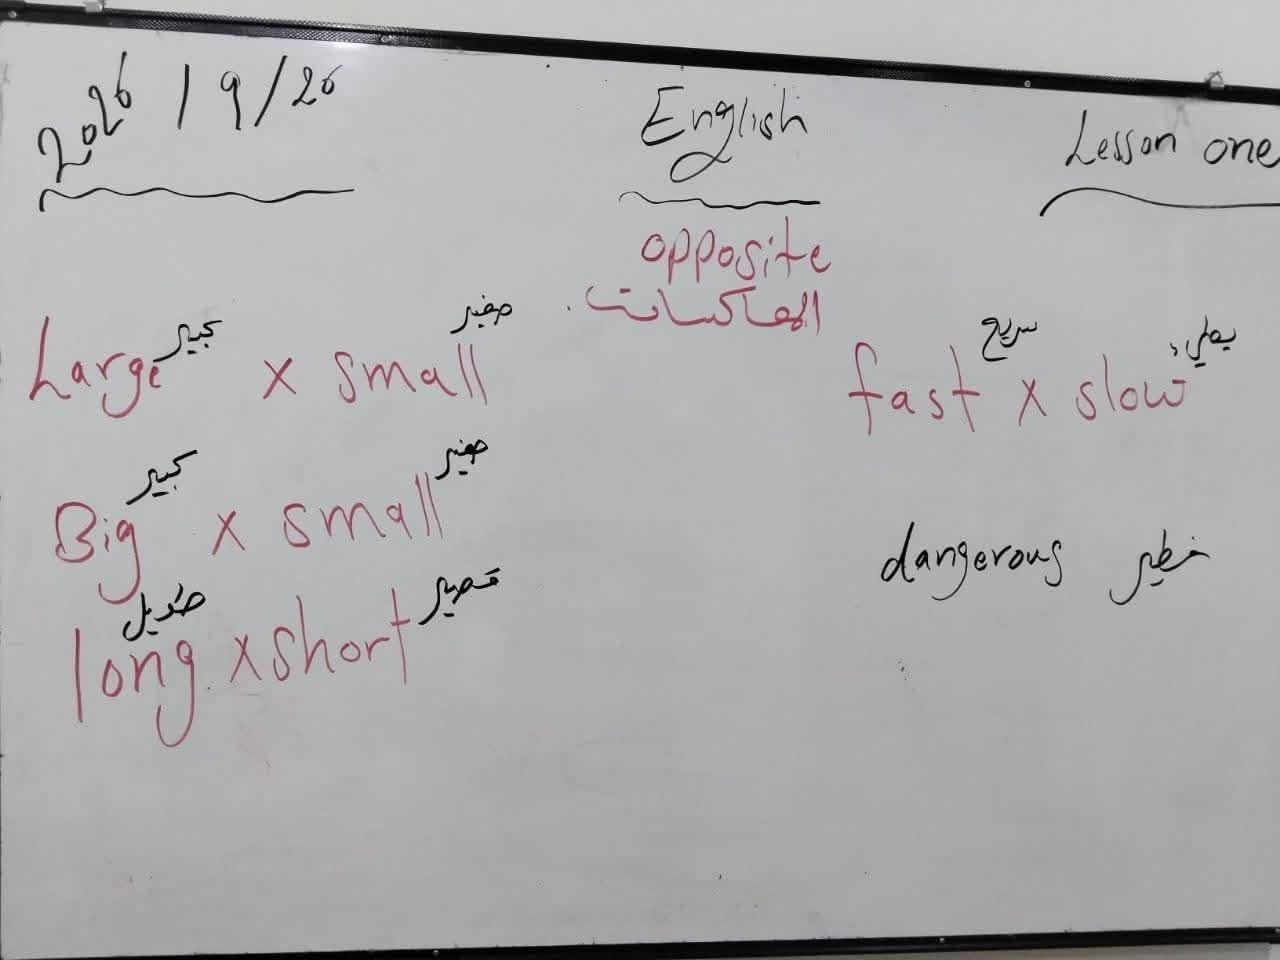 2026 / 9 / 26
English
Lesson one
opposite
المعاكسات.
Large كبير x small صغير
Big كبير x small صغير
long طويل x short قصير
fast سريع x slow بطيء
dangerous خطير